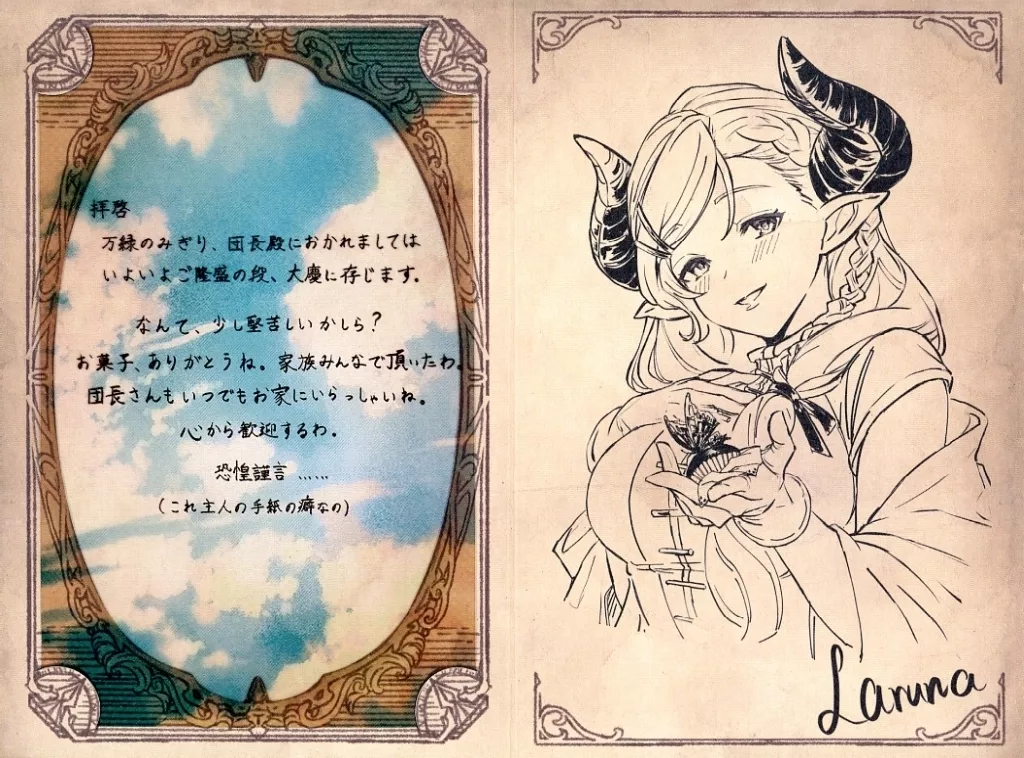 拝啓
万緑のみぎり、団長殿におかれましては
いよいよご隆盛の段、大慶に存じます。
なんて、少し堅苦しいかしら？
お菓子、ありがとうね。家族みんなで頂いたわ。
団長さんもいつでもお家にいらっしゃいね。
心から歓迎するわ。
恐惶謹言……
(これ主人の手紙の癖なの)
Laruna